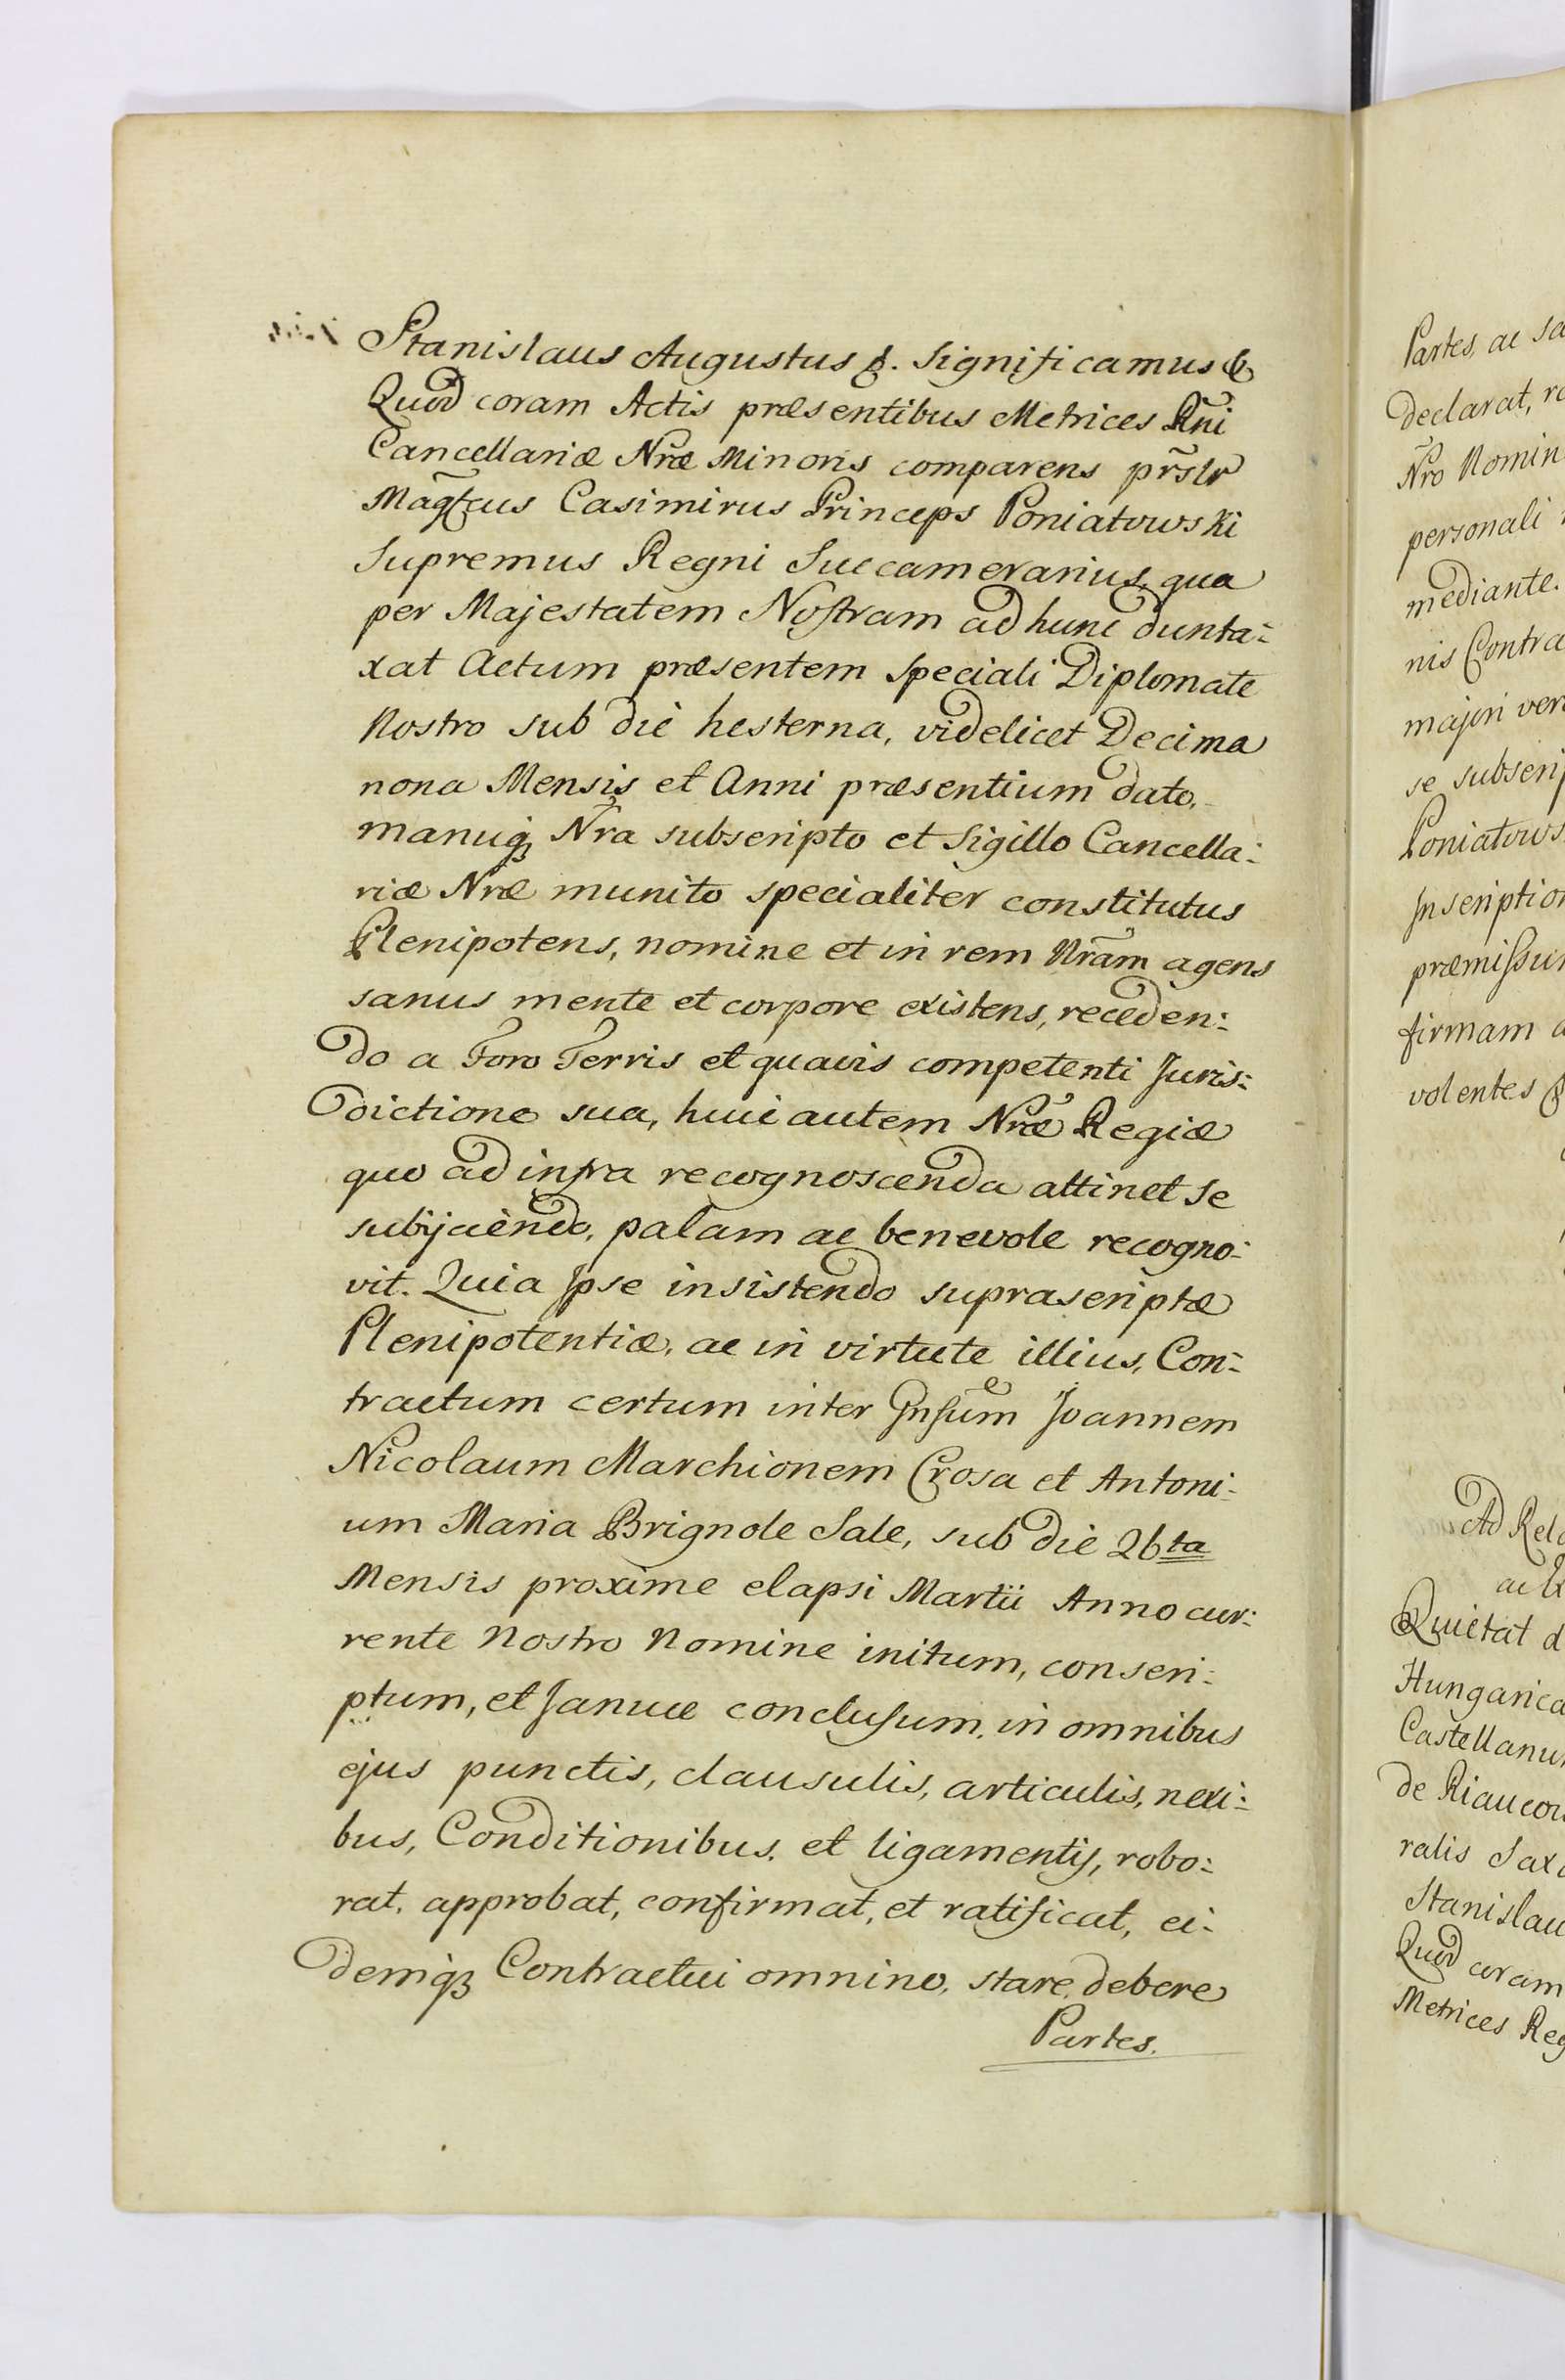 Stanislaus Augustus &. Significamus &
Quod coram Actis præsentibus Metrices Rñi
Cancellariæ Nræ Minoris comparens pr̃slr
Magñcus Casimirus Princeps Poniatowski
Supremus Regni Succamerarius, qua
per Majestatem Nostram ad hunc dunta-
xat Actum præsentem speciali Diplomate
Nostro sub die hesterna, videlicet Decima
nona Mensis et Anni præsentium dato,
manuq3 Nra subscripto et Sigillo Cancella-
riæ Nræ munito specialiter constitutus
Plenipotens, nomine et in rem Nram agens
sanus mente et corpore existens, receden-
do a Foro Terris et quavis competenti Juris-
dictione sua, huic autem Nræ Regiæ
quo ad infra recognoscenda attinet se
subijciendo, palam ac benevole recogno-
vit. Quia Ipse insistendo suprascriptæ
Plenipotentiæ, ac in virtute illius, Con-
tractum certum inter Gnsum Joannem
Nicolaum Marchionem Crosa et Antoni-
um Maria Brignole Sale, sub die 26ta
Mensis proxime elapsi Martii Anno cur-
rente Nostro Nomine initum, conscri-
ptum, et Januæ conclusum, in omnibus
ejus punctis, clausulis, articulis, nexi-
bus, Conditionibus, et ligamentis, robo-
rat, approbat, confirmat, et ratificat, ei-
demq3 Contractui omnino, stare debere
Partes.
Partes, ac
declarat,
Nro Nomin
personali
mediante.
nis Contra
majori
se subscrip
Poniatows
Inscription
præmissu
firmam
volentes
Ad Rela
Quietat d
Hungarica
Castellanu
de Riaucou
ralis Saxo
Stanislau
Quod coram
Metrices Reg